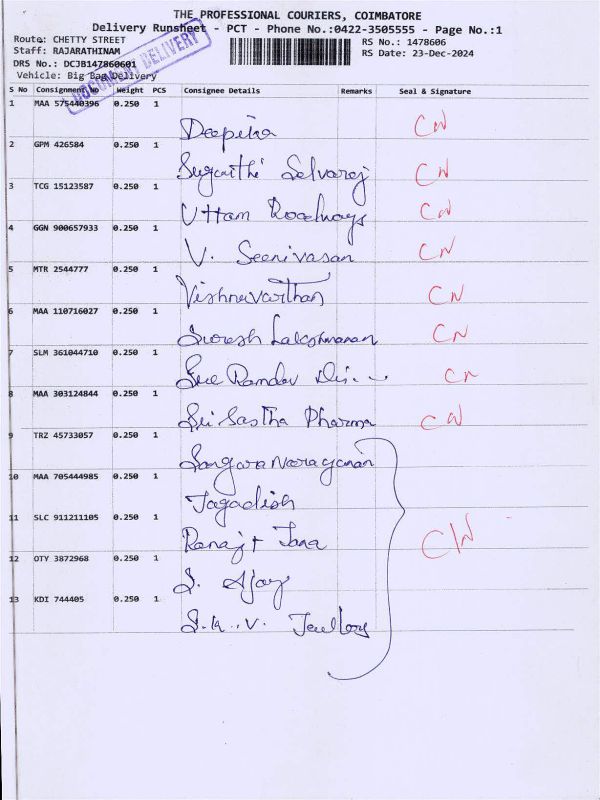 THE PROFESSIONAL COURIERS, COIMBATORE
Delivery Runsheet - PCT - Phone No.:0422-3505555 - Page No.:1
Route: CHETTY STREET
RS No.: 1478606
Staff: RAJARATHINAM
RS Date: 23-Dec-2024
DRS No.: DCJB147860601
Vehicle: Big Bag Delivery
DOCUMENT DELIVERY
S No Consignment No Weight PCS Consignee Details Remarks Seal & Signature
1 MAA 575440396 0.250 1
Deepika CN
2 GPM 426584 0.250 1
Suganthi Selvaraj CN
3 TCG 15123587 0.250 1
Uttam Roadways CN
4 GGN 900657933 0.250 1
V. Seenivasan CN
5 MTR 2544777 0.250 1
Vishnuvarthan CN
6 MAA 110716027 0.250 1
Suresh Lakshmanan CN
7 SLM 361044710 0.250 1
Sree Ramdev CN
8 MAA 303124844 0.250 1
Sri Sastha Pharma CN
9 TRZ 45733057 0.250 1
Sangaranarayanan
10 MAA 705444985 0.250 1
Jagadish
11 SLC 911211105 0.250 1
Ranajit Jana CN
12 OTY 3872968 0.250 1
S. Ajay
13 KDI 744405 0.250 1
S.K.V.